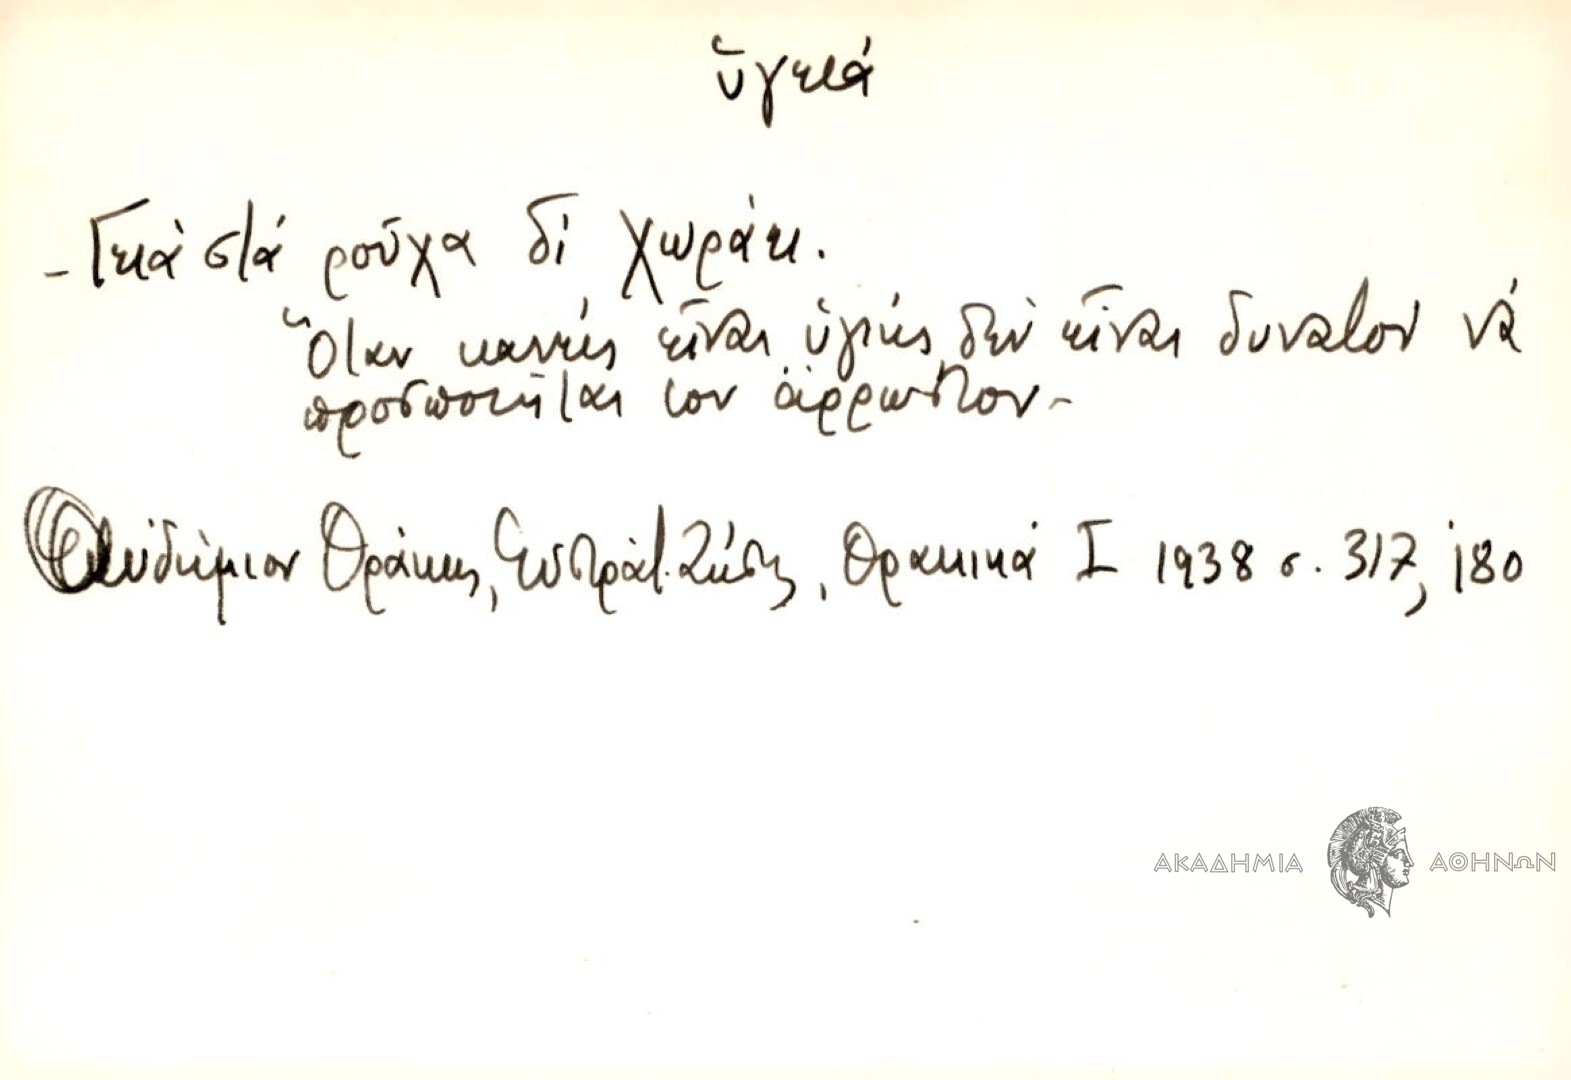 ὑγειά
– Γειὰ στὰ ροῦχα δὶ χωράει.
Ὅταν κανεὶς εἶναι ὑγιὴς δὲν εἶναι δυνατὸν νὰ
προσποιῆται τὸν ἄρρωστον –
Αὐδήμιον Θράκης, Εὐστρατ. Ζήσης, Θρακικά I 1938 σ. 317, 180
ΑΚΑΔΗΜΙΑ ΑΘΗΝΩΝ